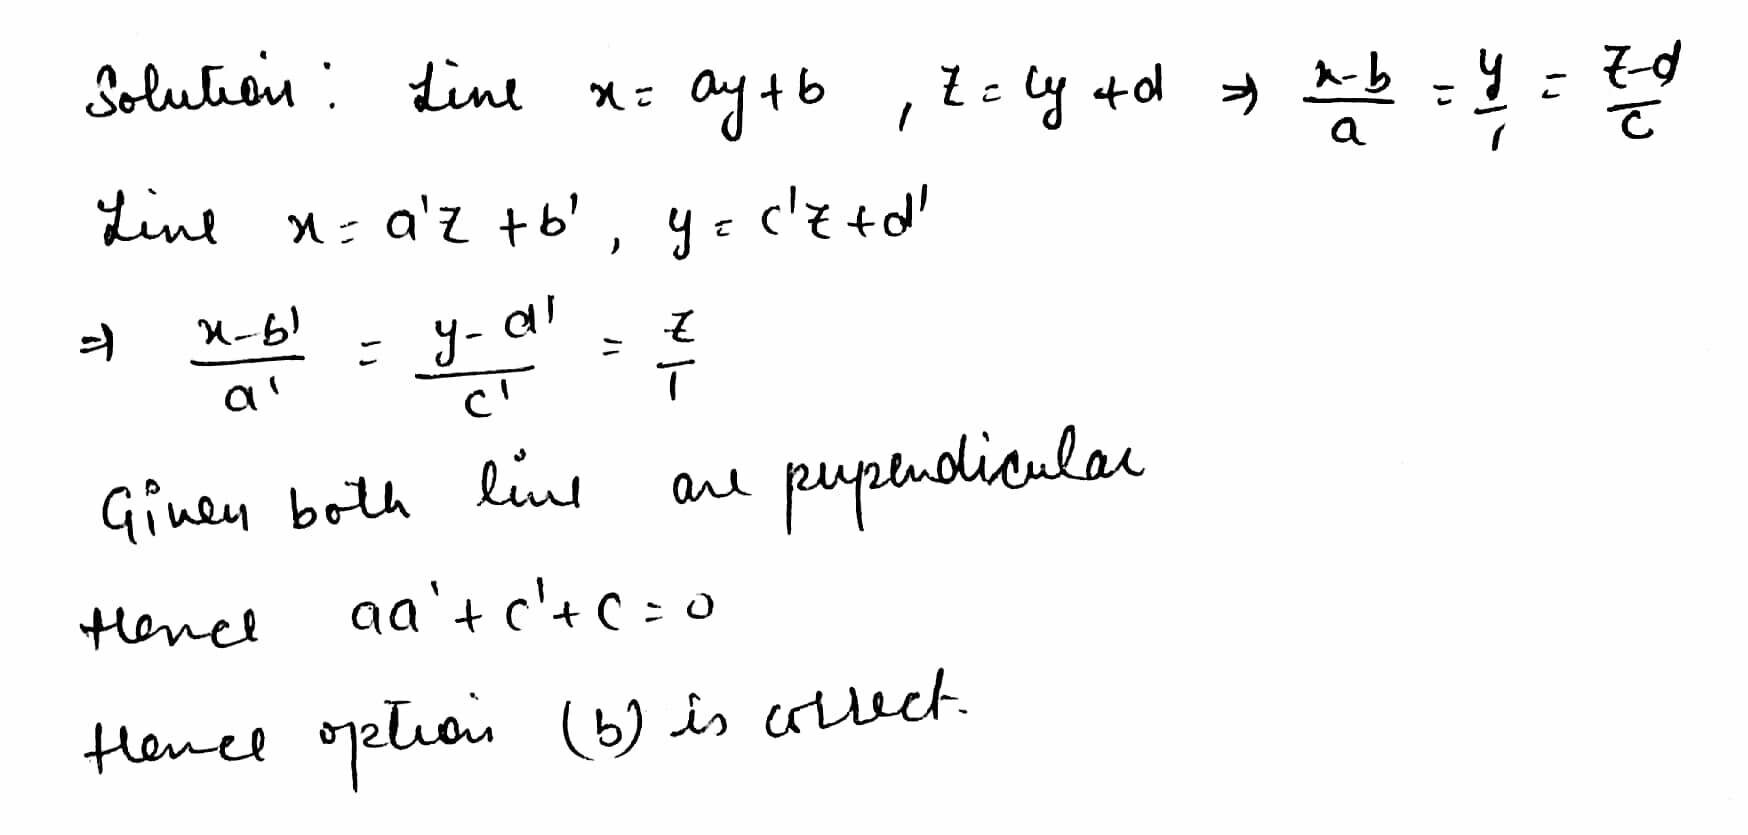 Solution: Line x = ay + b , z = cy + d ⇒ x-b/a = y/1 = z-d/c
Line x = a'z + b' , y = c'z + d'
⇒ x-b'/a' = y-d'/c' = z/1
Given both line are perpendicular
Hence aa' + c' + c = 0
Hence option (b) is correct.